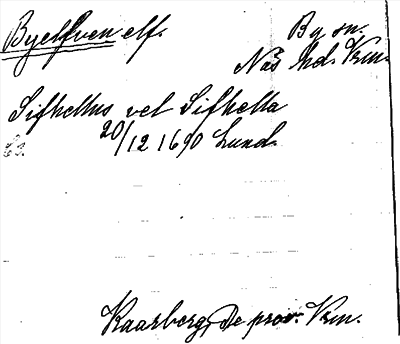 Byelfven elf.
By sn.
Näs hd. Vrm.
Sifhellus vel Sifhella
20/12 1690 Lund.
Kaarberg, De prov. Vrm.